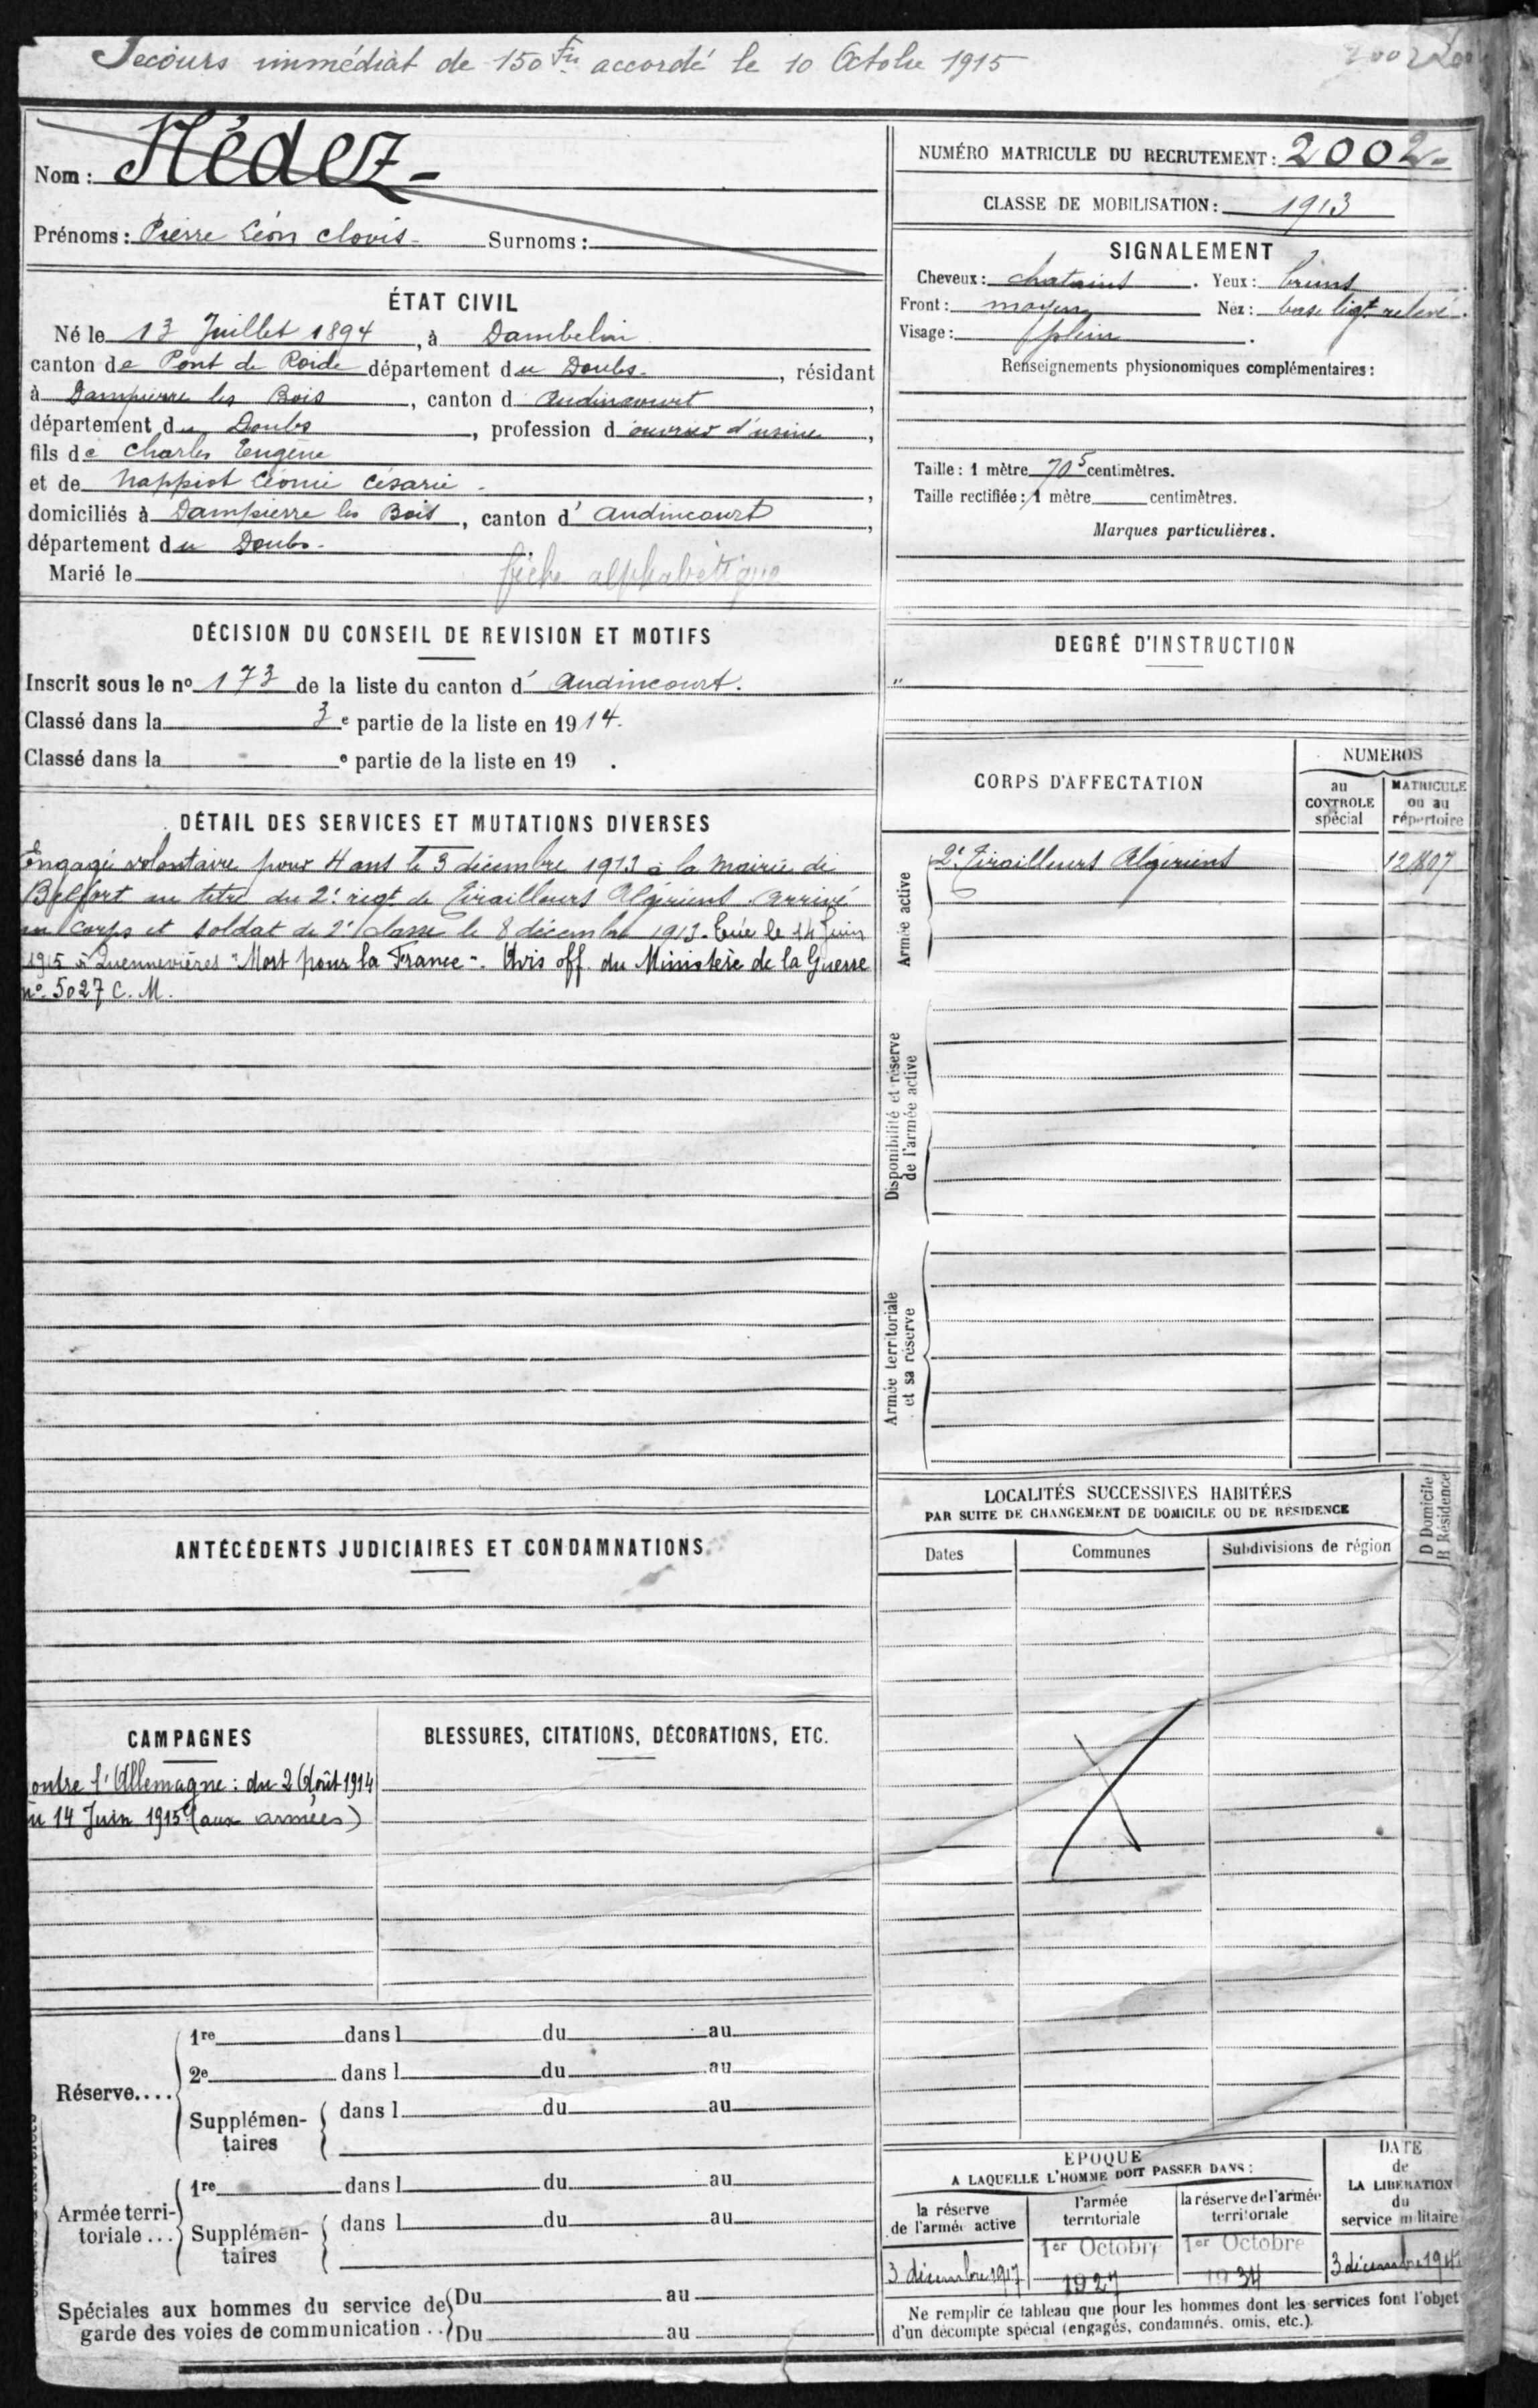 Secours immédiat de 150 Frs accordé le 10 Octobre 1915
Nom : Médez
Prénoms : Pierre Léon Clovis - Surnoms :
ÉTAT CIVIL
Né le 13 Juillet 1894, à Dambelin
canton de Pont de Roide département du Doubs, résidant
à Dampierre les Bois, canton d Audincourt,
département du Doubs, profession d ouvrier d'usine,
fils de Charles Eugène
et de Nappiot Léonie Césarie,
domiciliés à Dampierre les Bois, canton d' Audincourt,
département du Doubs.
Marié le
fiche alphabétique
DÉCISION DU CONSEIL DE REVISION ET MOTIFS
Inscrit sous le no 173 de la liste du canton d' Audincourt.
Classé dans la 3e partie de la liste en 1914.
Classé dans la e partie de la liste en 19 .
DÉTAIL DES SERVICES ET MUTATIONS DIVERSES
Engagé volontaire pour 4 ans le 3 décembre 1913 à la mairie de
Belfort au titre du 2e regt de Tirailleurs Algériens. Arrivé
au corps et soldat de 2e classe le 8 décembre 1913. Tué le 14 Juin
1915 à Quennevières "Mort pour la France". Avis off. du Ministère de la Guerre
no 5027 C. M.
ANTÉCÉDENTS JUDICIAIRES ET CONDAMNATIONS.
CAMPAGNES
ontre l'Allemagne : du 2 Août 1914
u 14 Juin 1915 (aux armées)
BLESSURES, CITATIONS, DÉCORATIONS, ETC.
Réserve....
1re dans l du au
2e dans l du au
Supplémentaires dans l du au
Armée territoriale ...
1re dans l du au
Supplémentaires dans l du au
Spéciales aux hommes du service de Du au
garde des voies de communication .. Du au
NUMÉRO MATRICULE DU RECRUTEMENT : 2002
CLASSE DE MOBILISATION : 1913
SIGNALEMENT
Cheveux : chatains . Yeux : bruns
Front : moyen Nez : base ligt relevé.
Visage : plein .
Renseignements physionomiques complémentaires :
Taille : 1 mètre 70 5 centimètres.
Taille rectifiée : 1 mètre centimètres.
Marques particulières.
DEGRÉ D'INSTRUCTION
"
CORPS D'AFFECTATION
NUMEROS
au CONTROLE spécial
MATRICULE ou au répertoire
Armée active
2e Tirailleurs Algériens 12807
Disponibilité et réserve
de l'armée active
Armée territoriale
et sa réserve
LOCALITÉS SUCCESSIVES HABITÉES
PAR SUITE DE CHANGEMENT DE DOMICILE OU DE RÉSIDENCE
D Domicile
R Résidence
Dates Communes Subdivisions de région
ÉPOQUE
A LAQUELLE L'HOMME DOIT PASSER DANS :
la réserve
de l'armée active
l'armée
territoriale
la réserve de l'armée
territoriale
DATE
de
LA LIBÉRATION
du
service militaire
3 décembre 1917
1er Octobre
1927
1er Octobre
1934
3 décembre
Ne remplir ce tableau que pour les hommes dont les services font l'objet
d'un décompte spécial (engagés, condamnés, omis, etc.).